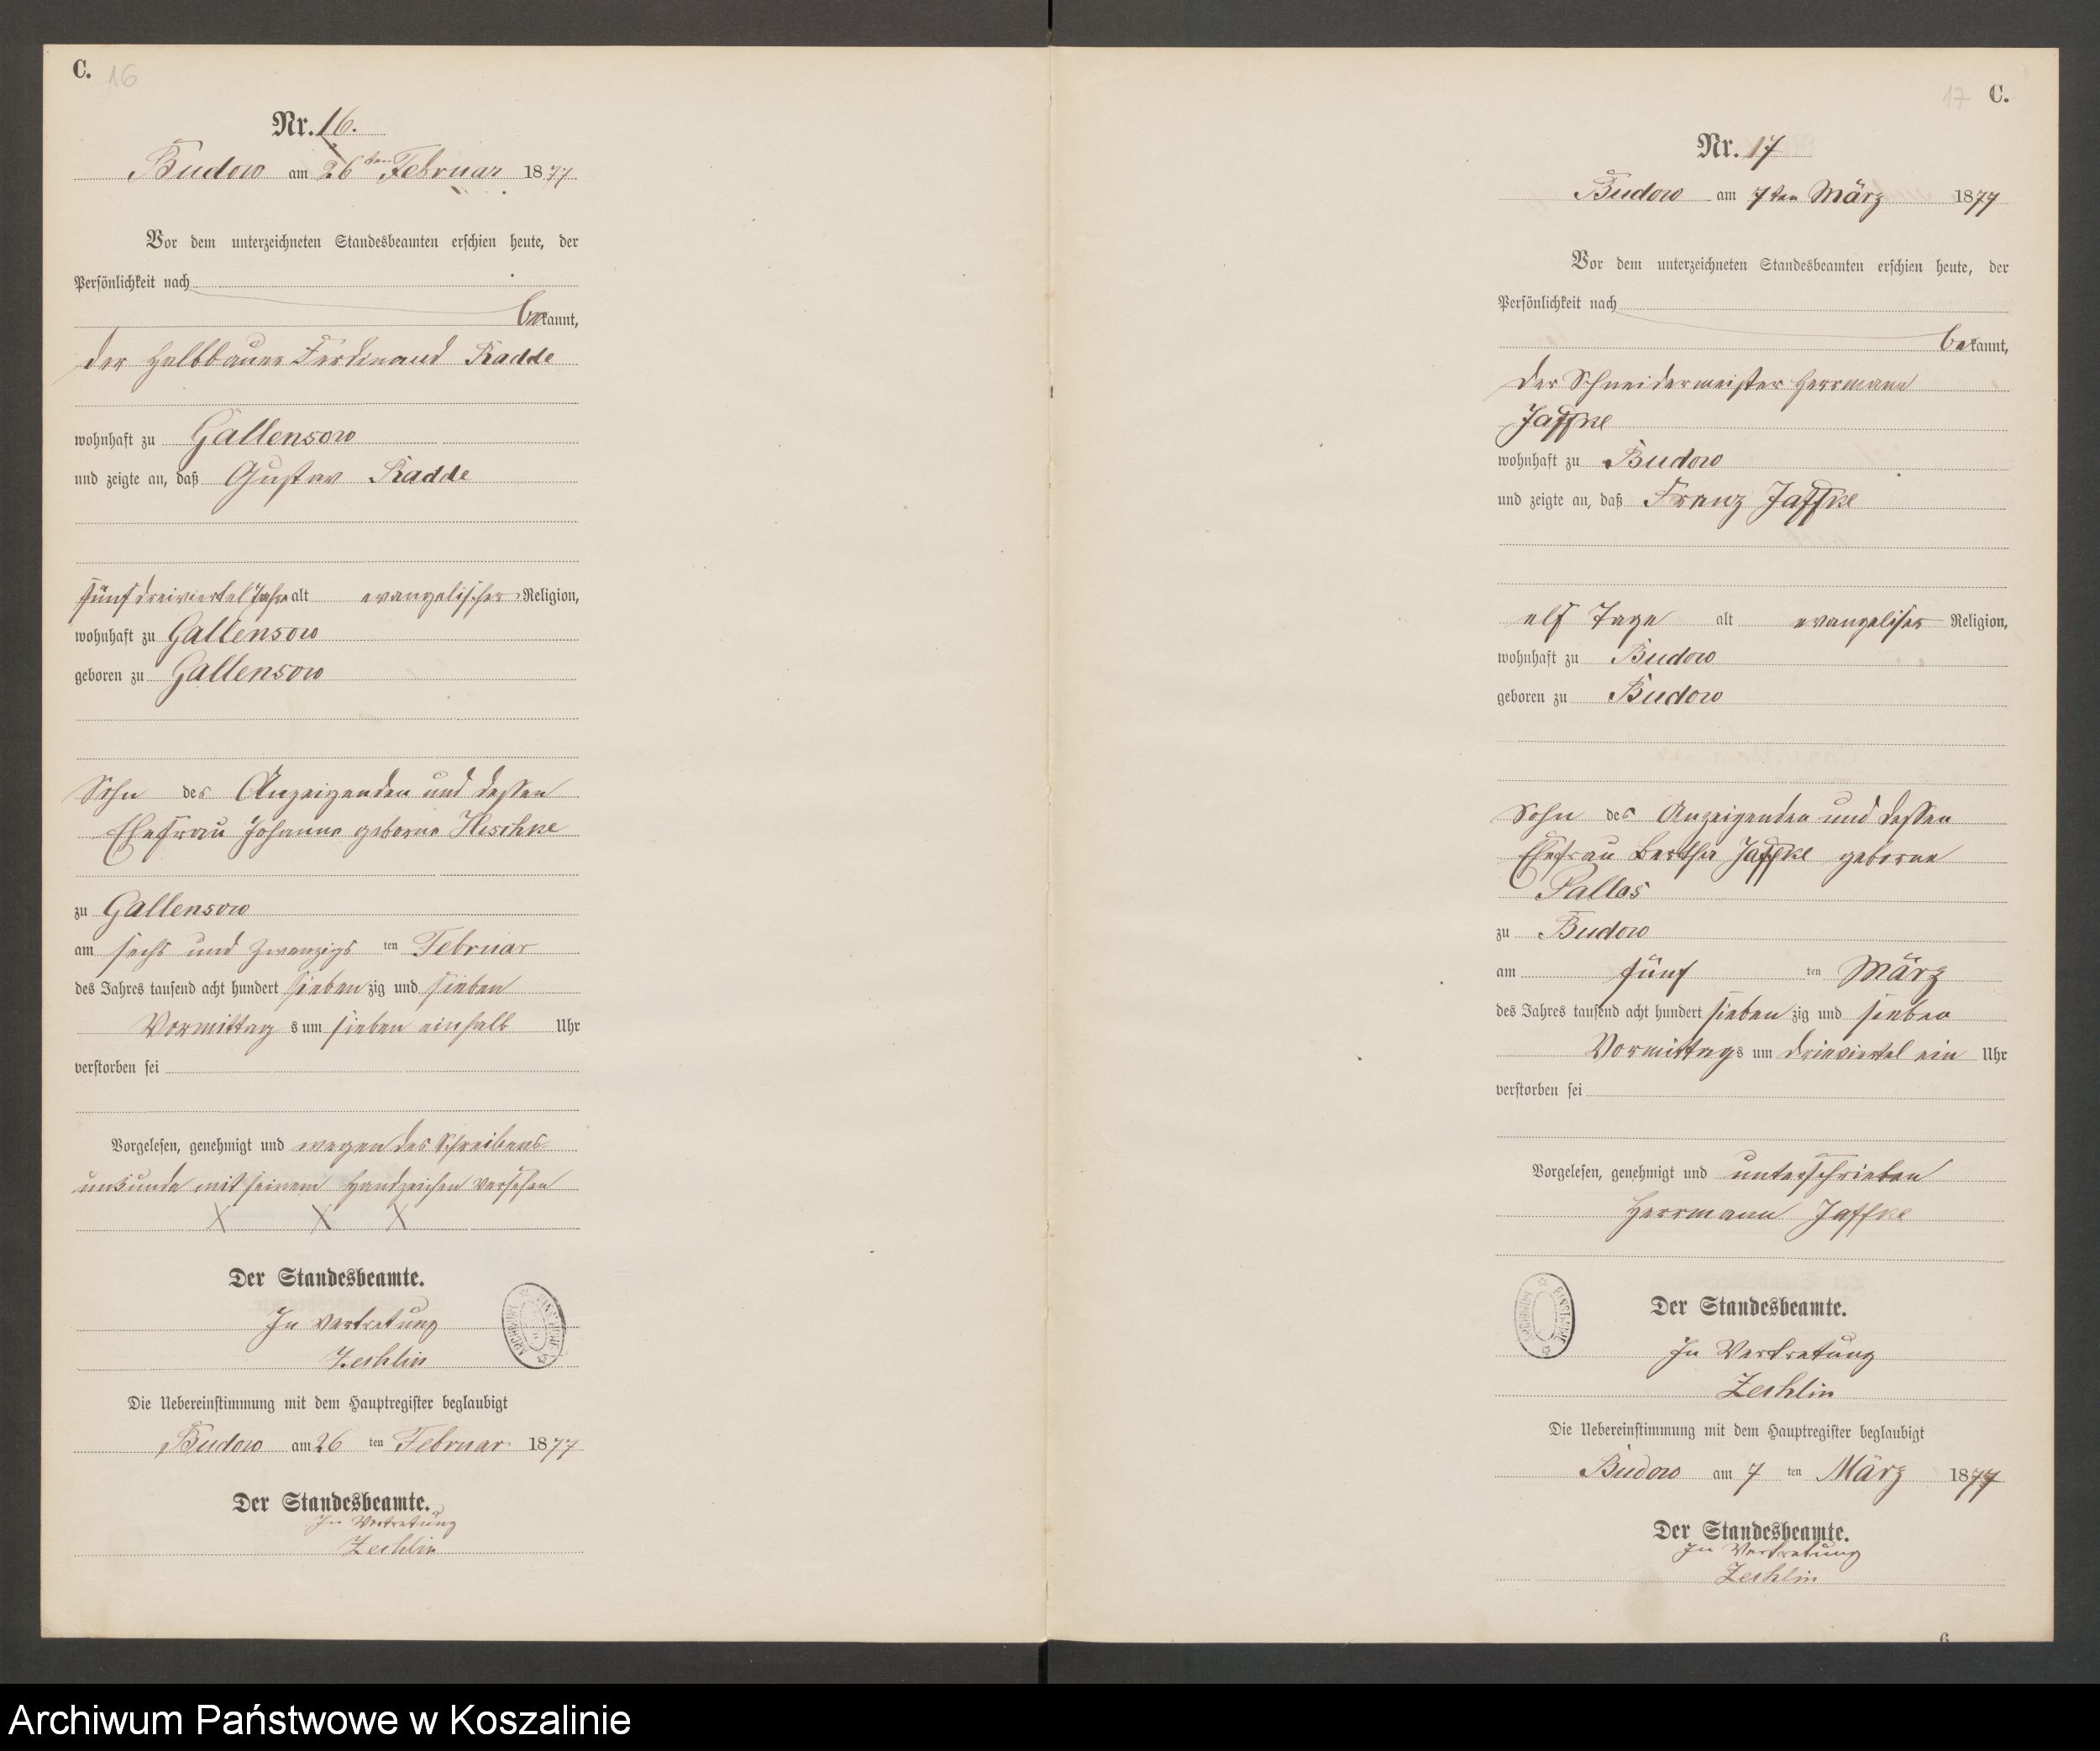 C. 16
Nr. 16.
Budow am 26ten Februar 1877
Vor dem unterzeichneten Standesbeamten erschien heute, der
Persönlichkeit nach
bekannt,
der Halbbauer Ferdinand Radde
wohnhaft zu Gallensow
und zeigte an, daß Gustav Radde
fünf dreiviertel Jahre alt evangelischer Religion,
wohnhaft zu Gallensow
geboren zu Gallensow
Sohn des Anzeigenden und dessen
Ehefrau Johanne geborne
zu Gallensow
am sechs und zwanzigs ten Februar
des Jahres tausend acht hundert sieben zig und sieben
Vormittag s um sieben einhalb Uhr
verstorben sei
Vorgelesen, genehmigt und wegen des Schreibens-
unkunde mit seinem Handzeichen versehen
X X X
Der Standesbeamte.
In Vertretung
Zechlin
Die Uebereinstimmung mit dem Hauptregister beglaubigt
Budow am 26 ten Februar 1877
Der Standesbeamte.
In Vertretung
Zechlin
17 C.
Nr. 17
Budow am 7ten März 1877
Vor dem unterzeichneten Standesbeamten erschien heute, der
Persönlichkeit nach
bekannt,
der Schneidermeister Herrmann
Jaffke
wohnhaft zu Budow
und zeigte an, daß Franz Jaffke
elf Tage alt evangelischer Religion,
wohnhaft zu Budow
geboren zu Budow
Sohn des Anzeigenden und dessen
Ehefrau Bertha Jaffke geborne
Pallas
zu Budow
am fünf ten März
des Jahres tausend acht hundert sieben zig und sieben
Vormittags um dreiviertel ein Uhr
verstorben sei
Vorgelesen, genehmigt und unterschrieben
Herrmann Jaffke
Der Standesbeamte.
In Vertretung
Zechlin
Die Uebereinstimmung mit dem Hauptregister beglaubigt
Budow am 7 ten März 1877
Der Standesbeamte.
In Vertretung
Zechlin
6
Archiwum Państwowe w Koszalinie